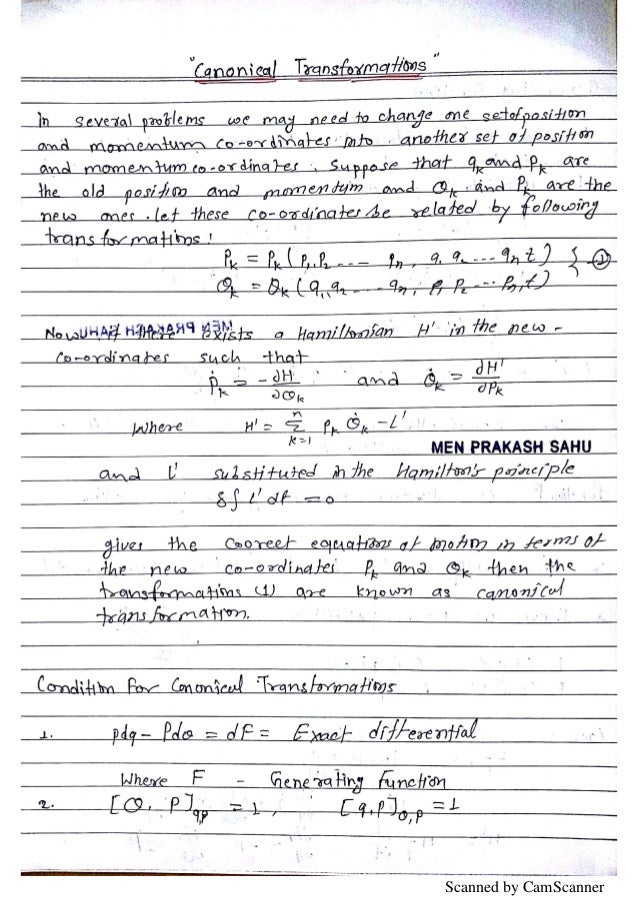 "Canonical Transformations"
In several problems we may need to change one set of position
and momentum co-ordinates into another set of position
and momentum co-ordinates. Suppose that qₖ and pₖ are
the old position and momentum and Qₖ and Pₖ are the
new ones. let these co-ordinates be related by following
transformations!
Pₖ = Pₖ (p₁, p₂ --- pₙ, q₁ q₂ --- qₙ t) } ①
Qₖ = Qₖ (q₁, q₂ --- qₙ, p₁ p₂ --- pₙ, t)
Now if there exists a Hamiltonian H' in the new-
MEN PRAKASH SAHU
co-ordinates such that
Ṗₖ = -∂H/∂Qₖ and Q̇ₖ = ∂H'/∂Pₖ
Where H' = Σₖ₌₁ⁿ Pₖ Q̇ₖ - L'
MEN PRAKASH SAHU
and L' substituted in the Hamilton's principle
δ∫ L' dt = 0
gives the coorect equations of motion in terms of
the new co-ordinates Pₖ and Qₖ then the
transformations (1) are known as canonical
transformation.
Condition for Canonical Transformations
1. pdq - PdQ = dF = Exact differential
Where F - Generating function
2. [Q, P]qp = 1, [q, p]Q,P = 1
Scanned by CamScanner